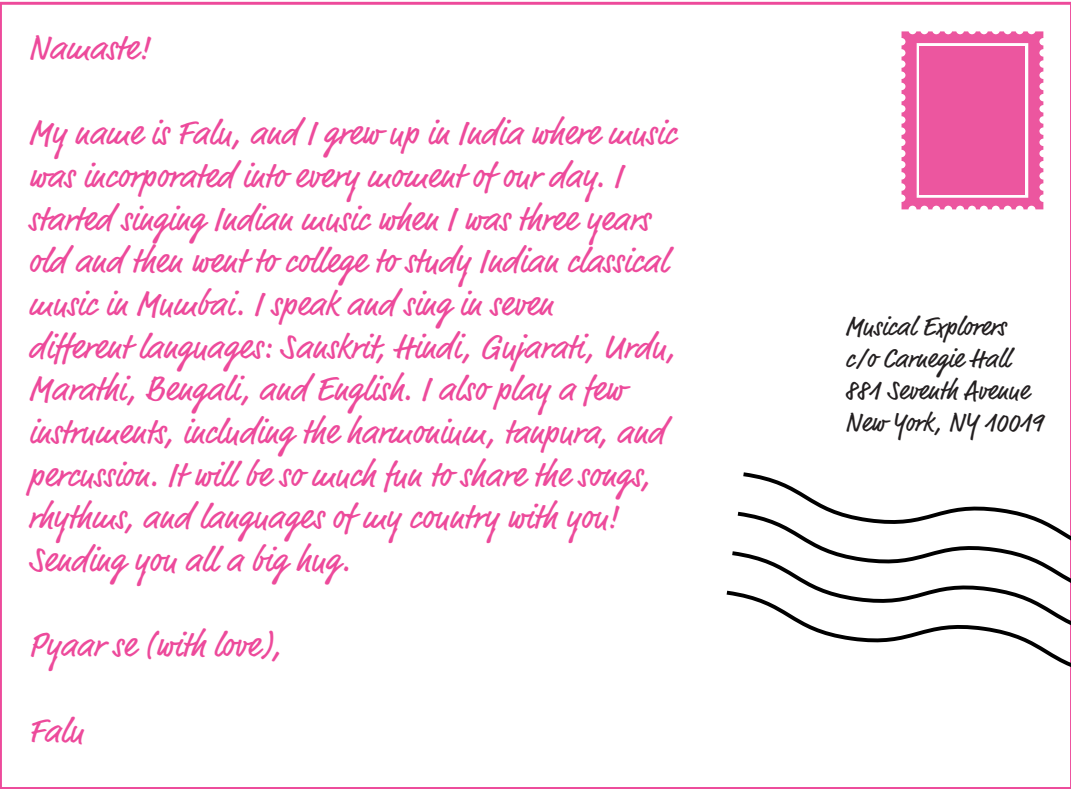 Namaste!
My name is Falu, and I grew up in India where music
was incorporated into every moment of our day. I
started singing Indian music when I was three years
old and then went to college to study Indian classical
music in Mumbai. I speak and sing in seven
different languages: Sanskrit, Hindi, Gujarati, Urdu,
Marathi, Bengali, and English. I also play a few
instruments, including the harmonium, tanpura, and
percussion. It will be so much fun to share the songs,
rhythms, and languages of my country with you!
Sending you all a big hug.
Pyaar se (with love),
Falu
Musical Explorers
c/o Carnegie Hall
881 Seventh Avenue
New York, NY 10019